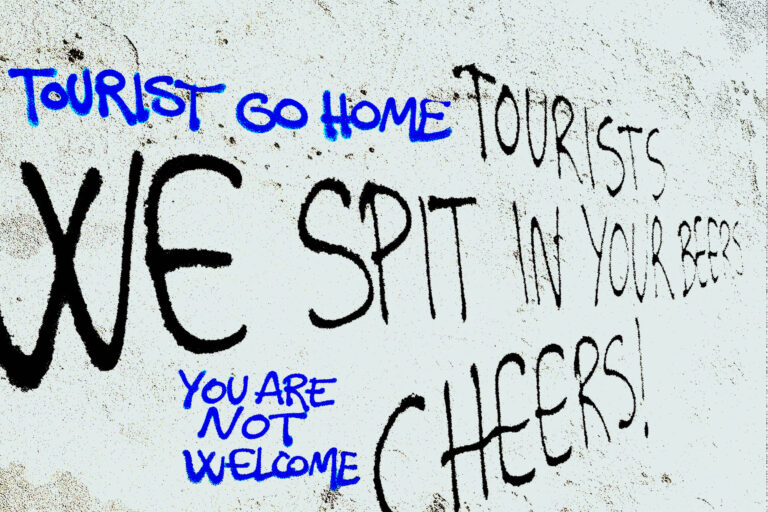 TOURIST GO HOME
TOURISTS
WE SPIT IN YOUR BEERS
CHEERS!
YOU ARE
NOT
WELCOME